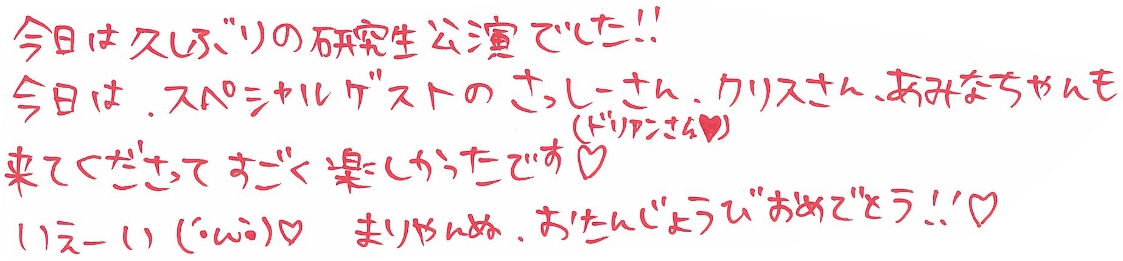 今日は久しぶりの研究生公演でした!!
今日は、スペシャルゲストのさっしーさん、クリスさん、あみなちゃんも
(ドリアンさん♥)
来てくださってすごく楽しかったです♡
いえーい(´・ω・`)♡ まりやんぬ、おたんじょうびおめでとう!!♡